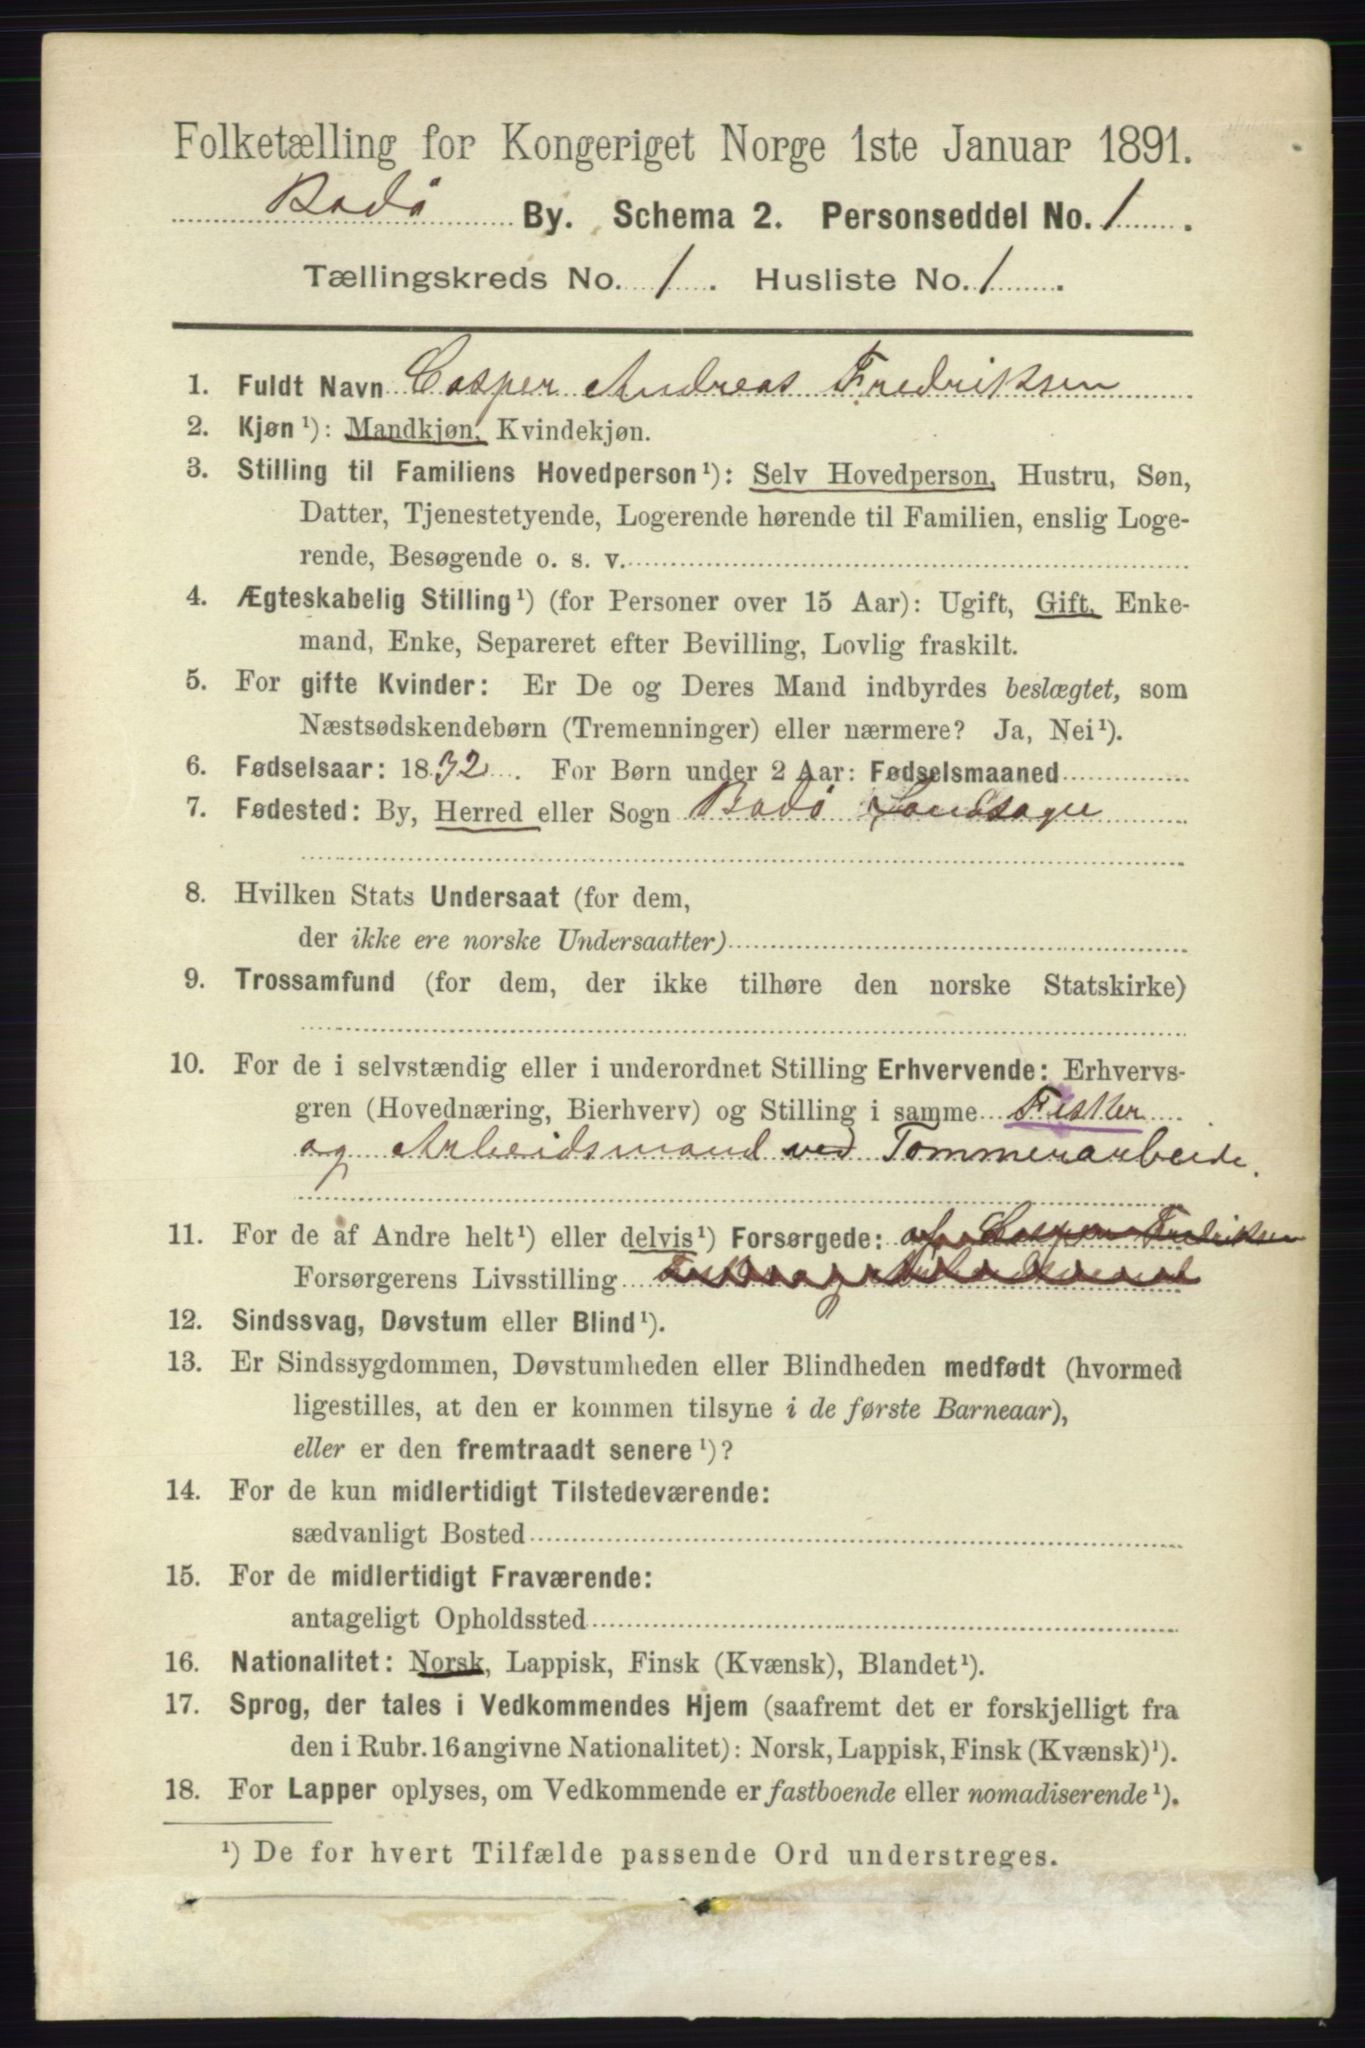 Folketælling for Kongeriget Norge 1ste Januar 1891.
Bodø By. Schema 2. Personseddel No. 1.
Tællingskreds No. 1. Husliste No. 1.
1. Fuldt Navn Casper Andreas Fredriksen
2. Kjøn ¹): Mandkjøn, Kvindekjøn.
3. Stilling til Familiens Hovedperson ¹): Selv Hovedperson, Hustru, Søn,
Datter, Tjenestetyende, Logerende hørende til Familien, enslig Loge-
rende, Besøgende o. s. v.
4. Ægteskabelig Stilling ¹) (for Personer over 15 Aar): Ugift, Gift, Enke-
mand, Enke, Separeret efter Bevilling, Lovlig fraskilt.
5. For gifte Kvinder: Er De og Deres Mand indbyrdes beslægtet, som
Næstsødskendebørn (Tremenninger) eller nærmere? Ja, Nei ¹).
6. Fødselsaar: 1832. For Børn under 2 Aar: Fødselsmaaned
7. Fødested: By, Herred eller Sogn Bodø Landsogn
8. Hvilken Stats Undersaat (for dem,
der ikke ere norske Undersaatter)
9. Trossamfund (for dem, der ikke tilhøre den norske Statskirke)
10. For de i selvstændig eller i underordnet Stilling Erhvervende: Erhvervs-
gren (Hovednæring, Bierhverv) og Stilling i samme Fisker
og Arbeidsmand ved Tommerarbeide.
11. For de af Andre helt ¹) eller delvis ¹) Forsørgede: af Casper Fredriksen
Forsørgerens Livsstilling
12. Sindssvag, Døvstum eller Blind ¹).
13. Er Sindssygdommen, Døvstumheden eller Blindheden medfødt (hvormed
ligestilles, at den er kommen tilsyne i de første Barneaar),
eller er den fremtraadt senere ¹)?
14. For de kun midlertidigt Tilstedeværende:
sædvanligt Bosted
15. For de midlertidigt Fraværende:
antageligt Opholdssted
16. Nationalitet: Norsk, Lappisk, Finsk (Kvænsk), Blandet ¹).
17. Sprog, der tales i Vedkommendes Hjem (saafremt det er forskjelligt fra
den i Rubr. 16 angivne Nationalitet): Norsk, Lappisk, Finsk (Kvænsk) ¹).
18. For Lapper oplyses, om Vedkommende er fastboende eller nomadiserende ¹).
¹) De for hvert Tilfælde passende Ord understreges.